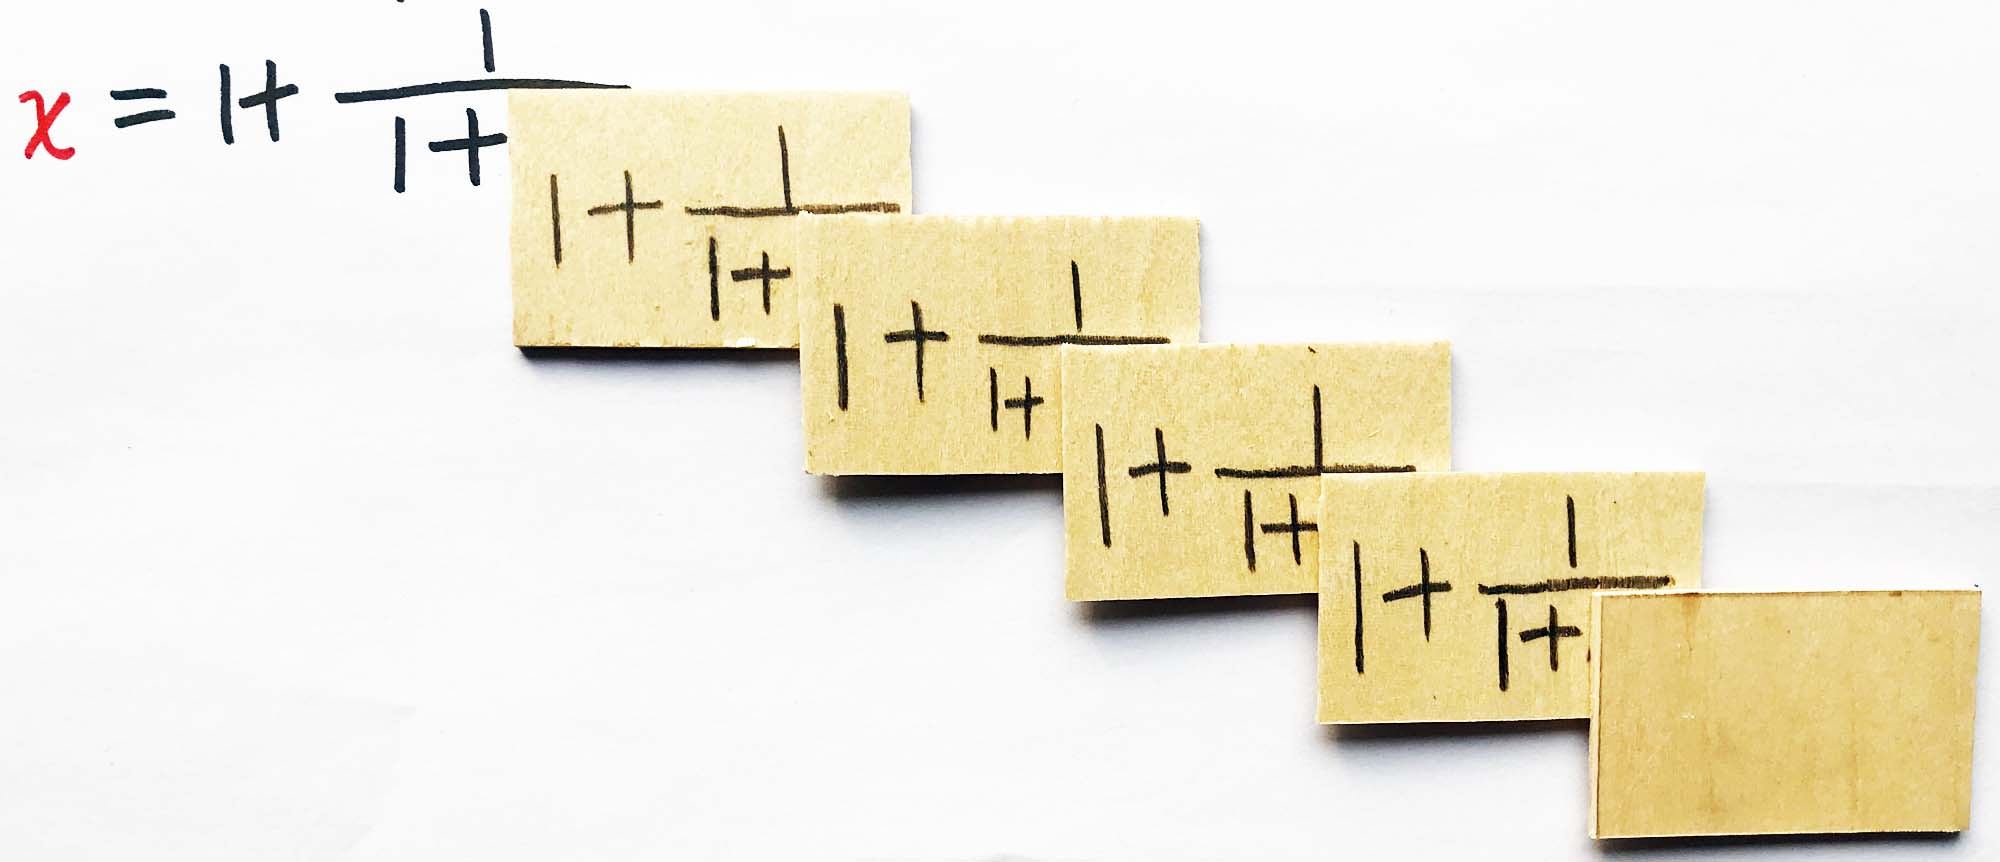 x = 1+ 1/1+
1+ 1/1+
1+ 1/1+
1+ 1/1+
1+ 1/1+